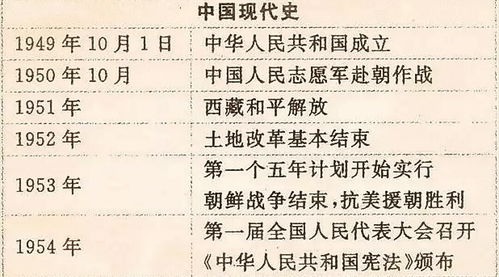 中国现代史
1949年10月1日 中华人民共和国成立
1950年10月 中国人民志愿军赴朝作战
1951年 西藏和平解放
1952年 土地改革基本结束
1953年 第一个五年计划开始实行
朝鲜战争结束,抗美援朝胜利
1954年 第一届全国人民代表大会召开
《中华人民共和国宪法》颁布